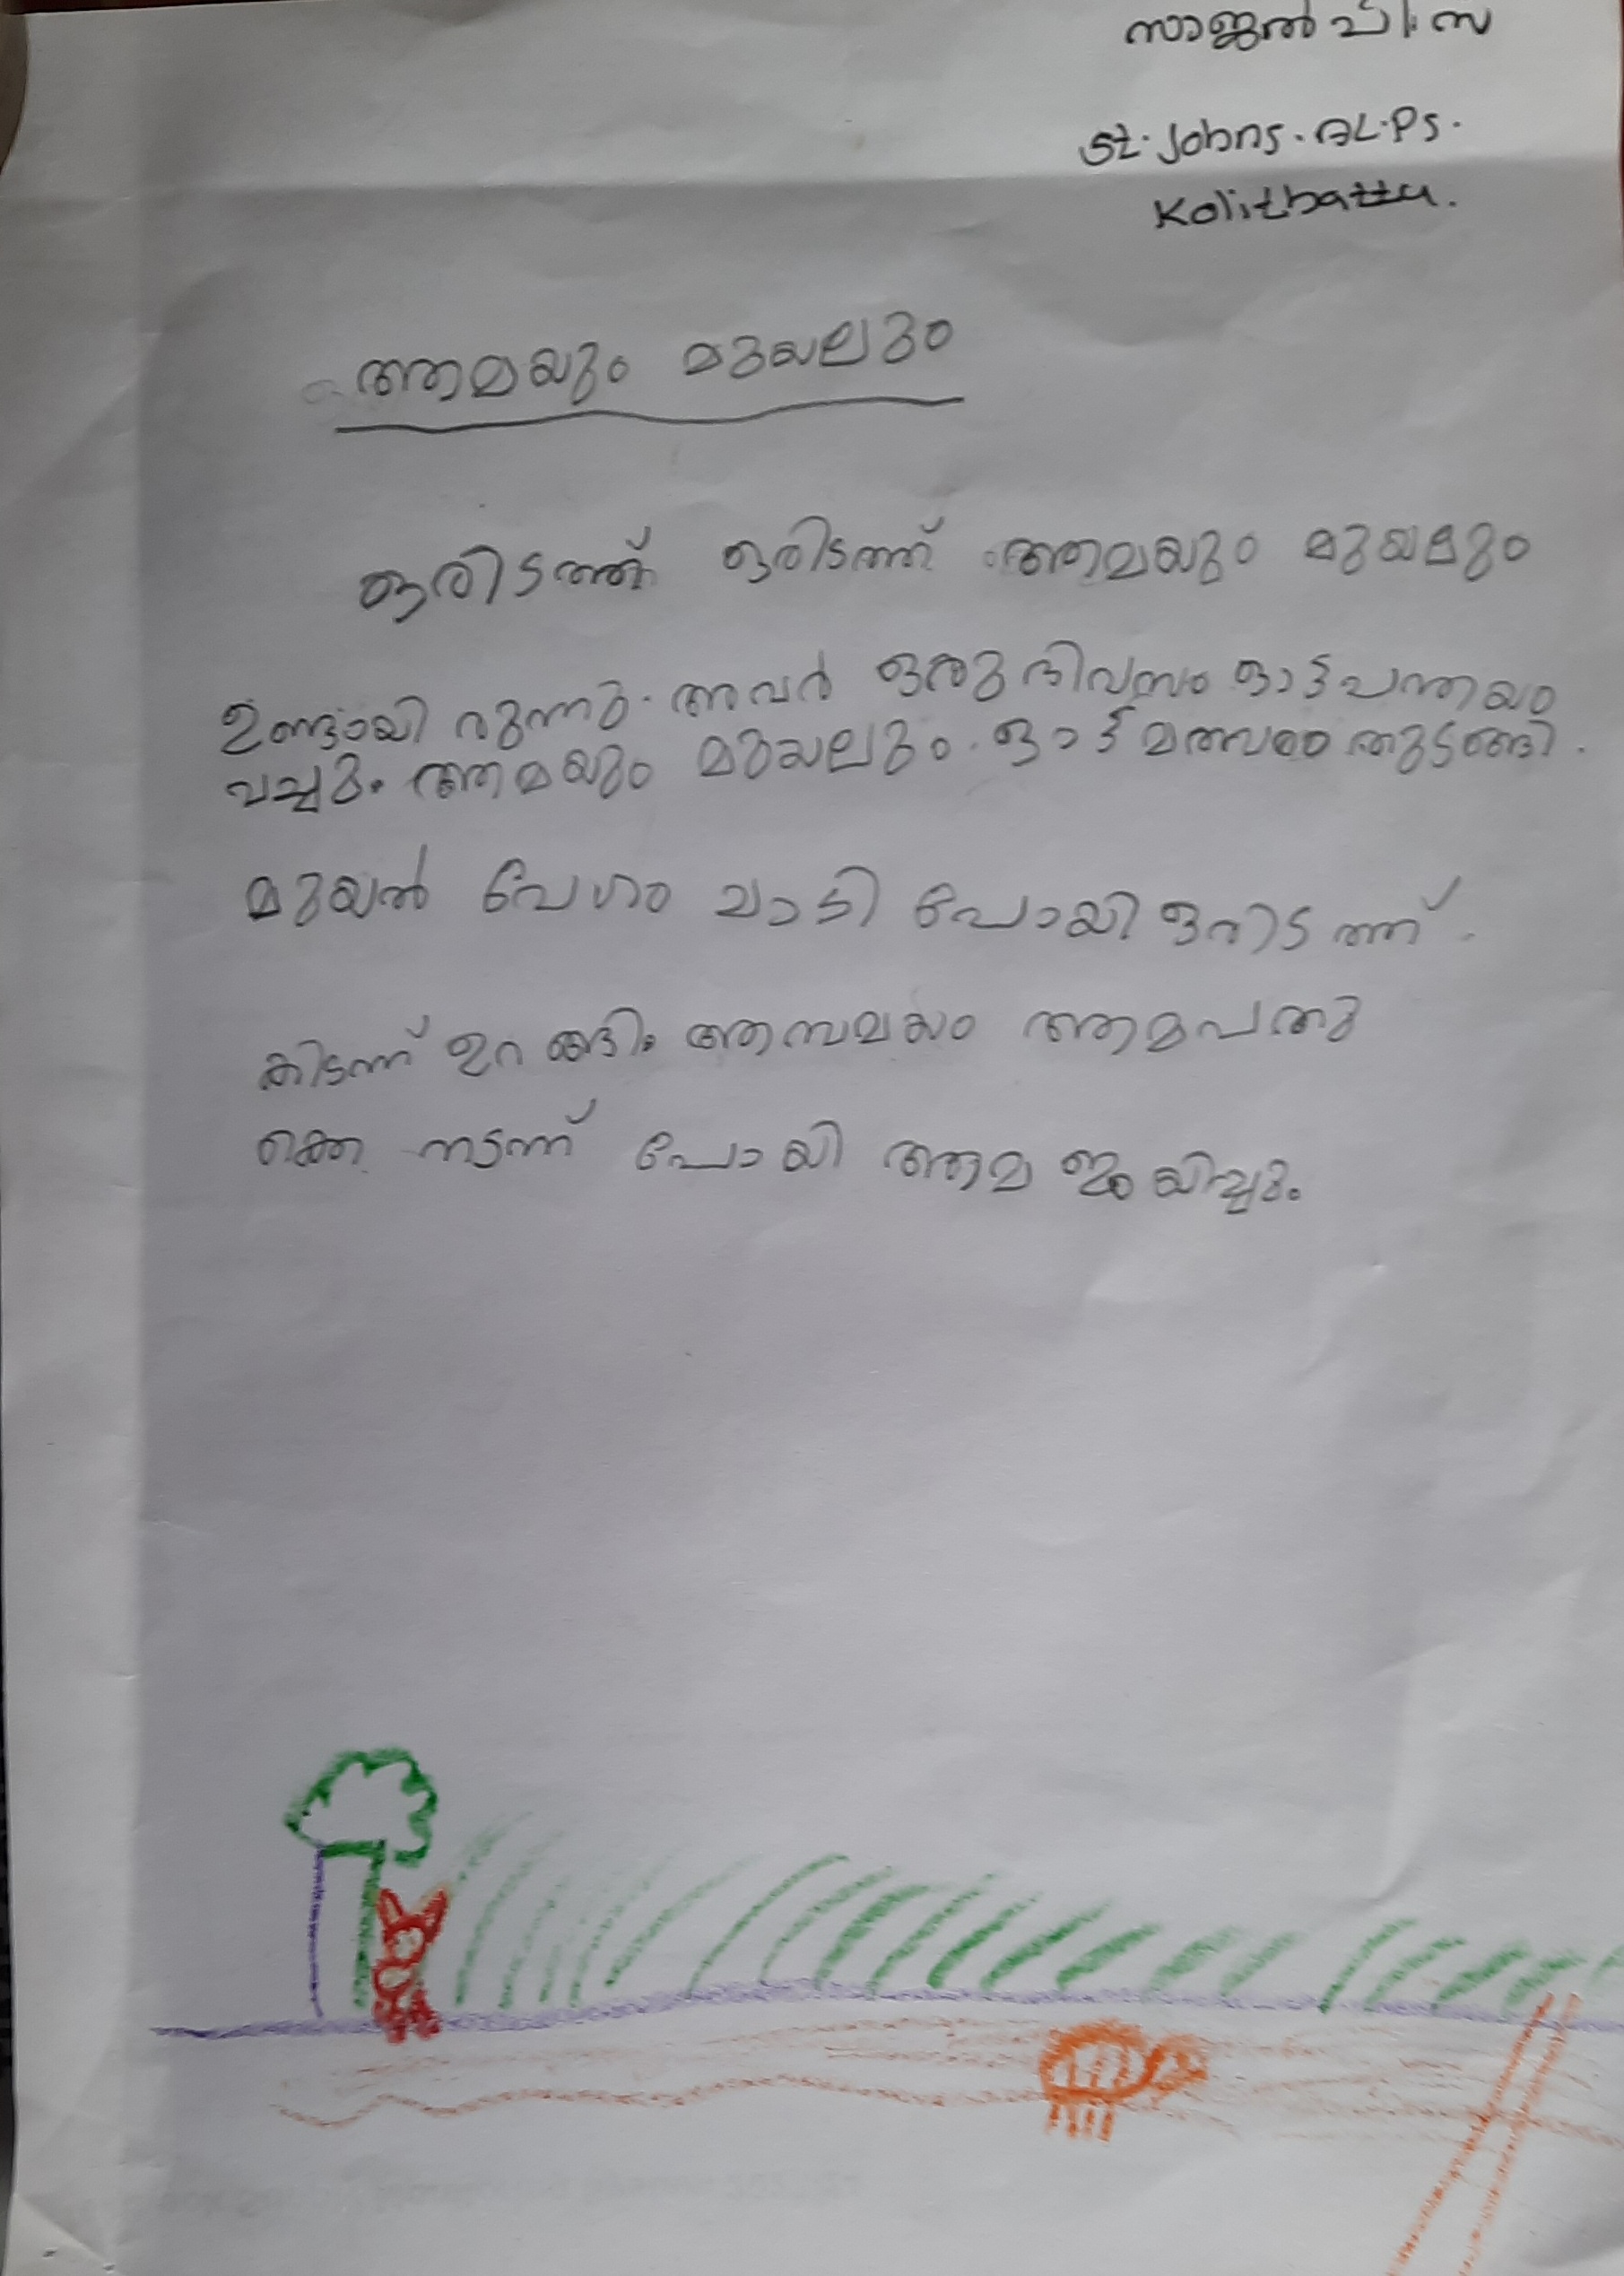 സാജൽ പി. സ
St. Johns. AL.Ps.
Kolithattu.
ആമയും മുയലും
ഒരിടത്ത് ഒരിടത്ത് ആമയും മുയലും
ഉണ്ടായി രുന്നു. അവർ ഒരു ദിവസം ഓട്ട പന്തയം
വച്ചു. ആമയും മുയലും ഓട്ട മത്സരം തുടങ്ങി.
മുയൽ വേഗം ചാടി പോയി ഒരിടത്ത്
കിടന്ന് ഉറ ങ്ങി. ആസമയം ആമപതു
ക്കെ നടന്ന് പോയി ആമ ജയിച്ചു.